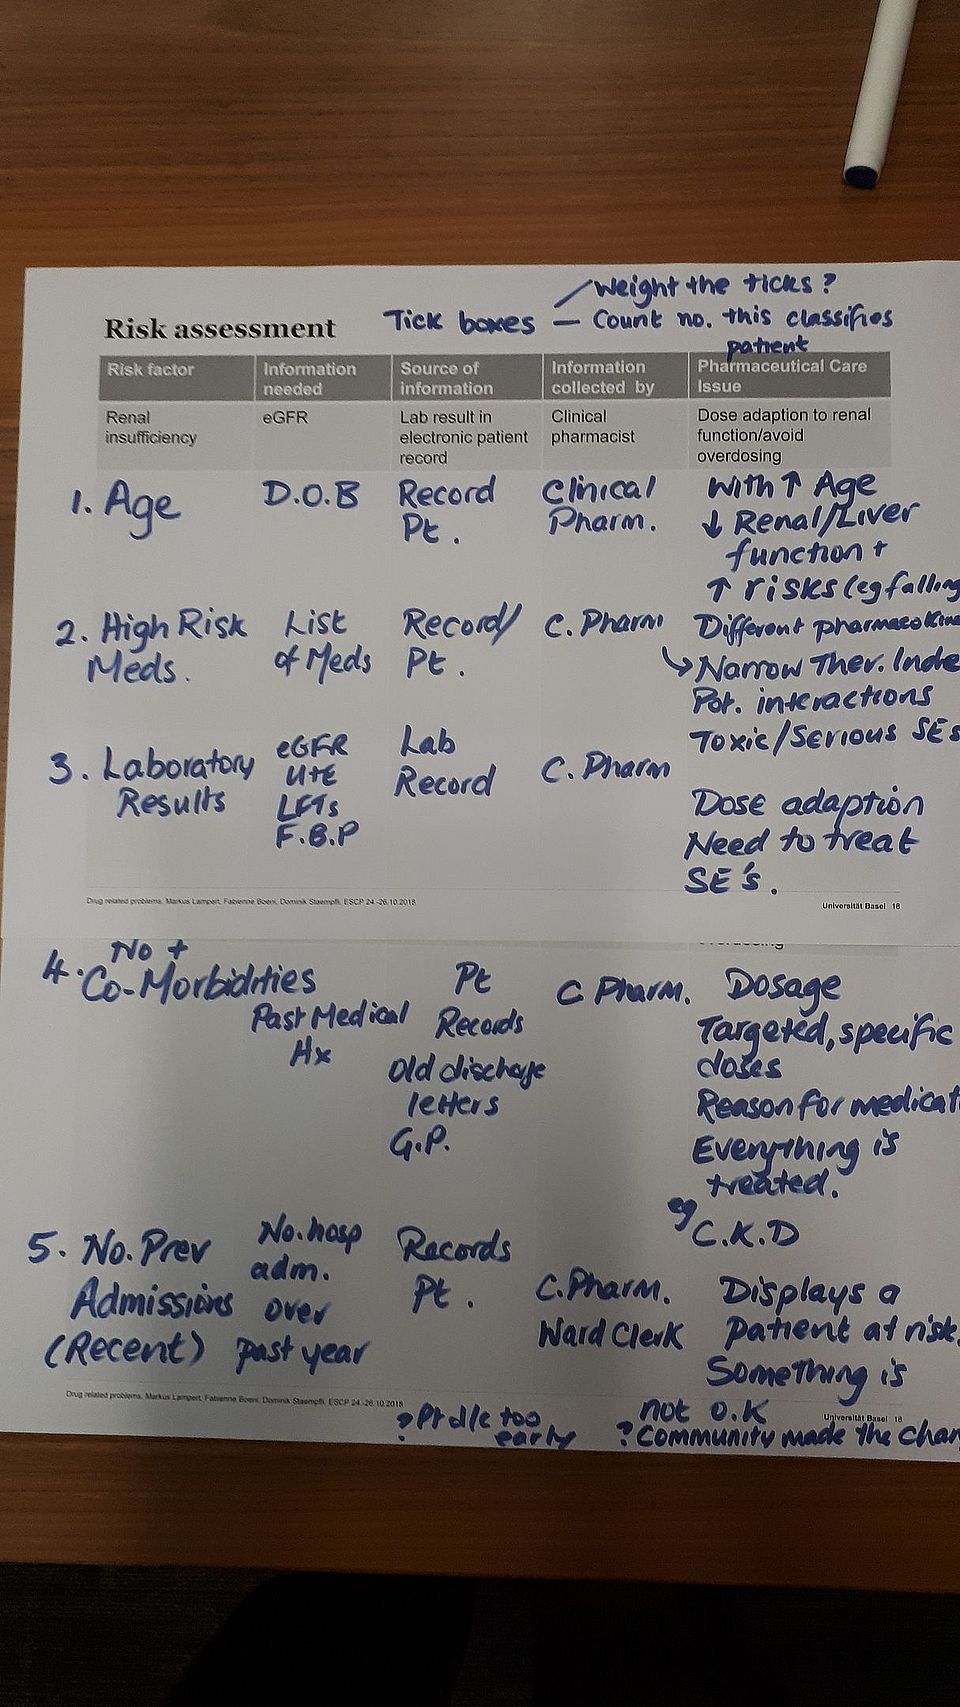 Weight the ticks?
Risk assessment Tick boxes — Count no. this classifies
patient
Risk factor Information needed Source of information Information collected by Pharmaceutical Care Issue
Renal insufficiency eGFR Lab result in electronic patient record Clinical pharmacist Dose adaption to renal function/avoid overdosing
1. Age D.O.B Record Pt. Clinical Pharm. With ↑ Age
↓ Renal/Liver
function +
↑ risks (eg falling
2. High Risk Meds. List of Meds Record/ Pt. C. Pharm Different pharmacokine
↳ Narrow Ther. Inde
Pot. interactions
Toxic/Serious SEs
3. Laboratory Results eGFR U+E LFTs F.B.P Lab Record C. Pharm
Dose adaption
Need to treat
SE's.
Drug related problems, Markus Lampert, Fabienne Boeni, Dominik Staempfli, ESCP 24.-26.10.2018 Universität Basel 18
overdosing
4. No + Co-Morbidities Past Medical Hx Pt Records Old discharge letters G.P. C Pharm. Dosage
Targeted, specific
doses
Reason for medicat
Everything is
treated.
eg C.K.D
5. No. Prev Admissions (Recent) No. hosp adm. over past year Records Pt. C. Pharm. Ward Clerk Displays a
patient at risk.
Something is
not O.K
Drug related problems, Markus Lampert, Fabienne Boeni, Dominik Staempfli, ESCP 24.-26.10.2018 Universität Basel 18
? Pt d/c too early ? Community made the chan